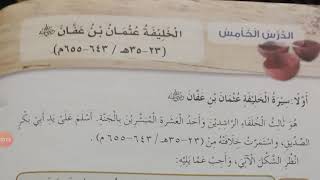 الدَّرْسُ الْخَامِسُ
الْخَلِيْفَةُ عُثْمَانُ بْنُ عَفَّانَ ﷺ
(٢٣-٣٥هـ / ٦٤٣-٦٥٥م)
أَوَّلًا: سِيْرَةُ الْخَلِيْفَةِ عُثْمَانَ بْنِ عَفَّانَ
هُوَ ثَالِثُ الْخُلَفَاءِ الرَّاشِدِيْنَ وَأَحَدُ الْعَشَرَةِ الْمُبَشَّرِيْنَ بِالْجَنَّةِ. أَسْلَمَ عَلَى يَدِ أَبِي بَكْرٍ
الصِّدِّيْقِ، وَاسْتَمَرَّتْ خِلَافَتُهُ مِنْ (٢٣-٣٥هـ / ٦٤٣-٦٥٥م).
انْظُرِ الشَّكْلَ الْآتِيَ، وَأَجِبْ عَمَّا يَلِيْهِ: